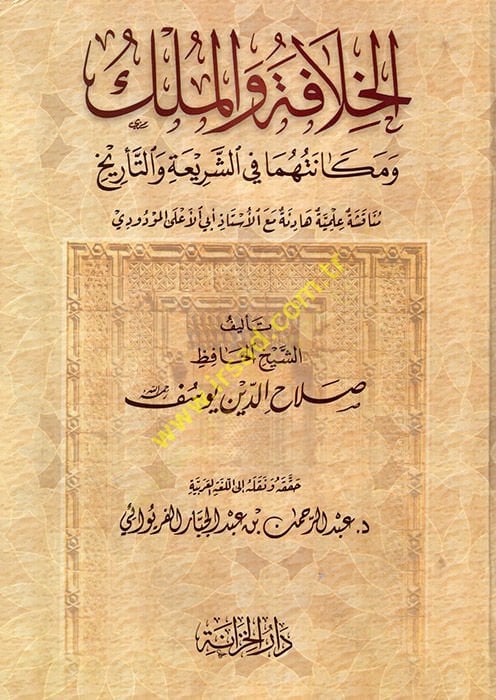 الخِلَافَةُ وَالمُلْكُ
وَمَكَانَتُهُمَا فِي الشَّرِيعَةِ وَالتَّأْرِيخِ
مُنَاقَشَةٌ عِلْمِيَّةٌ هَادِئَةٌ مَعَ الأُسْتَاذِ أَبِي الأَعْلَى المَوْدُودِيّ
تَأليفُ
الشَّيْخِ الحَافِظِ
صَلَاح الدِّين يُوسُف رحمه الله
حَقَّقَهُ وَنَقَلَهُ إِلَى اللُّغَةِ العَرَبِيَّةِ
د. عَبْد الرَّحْمٰن بن عَبْد الجَبَّار الفَرِيوَائِي
دَارُ الخِزَانَةِ
www.irsad.com.tr